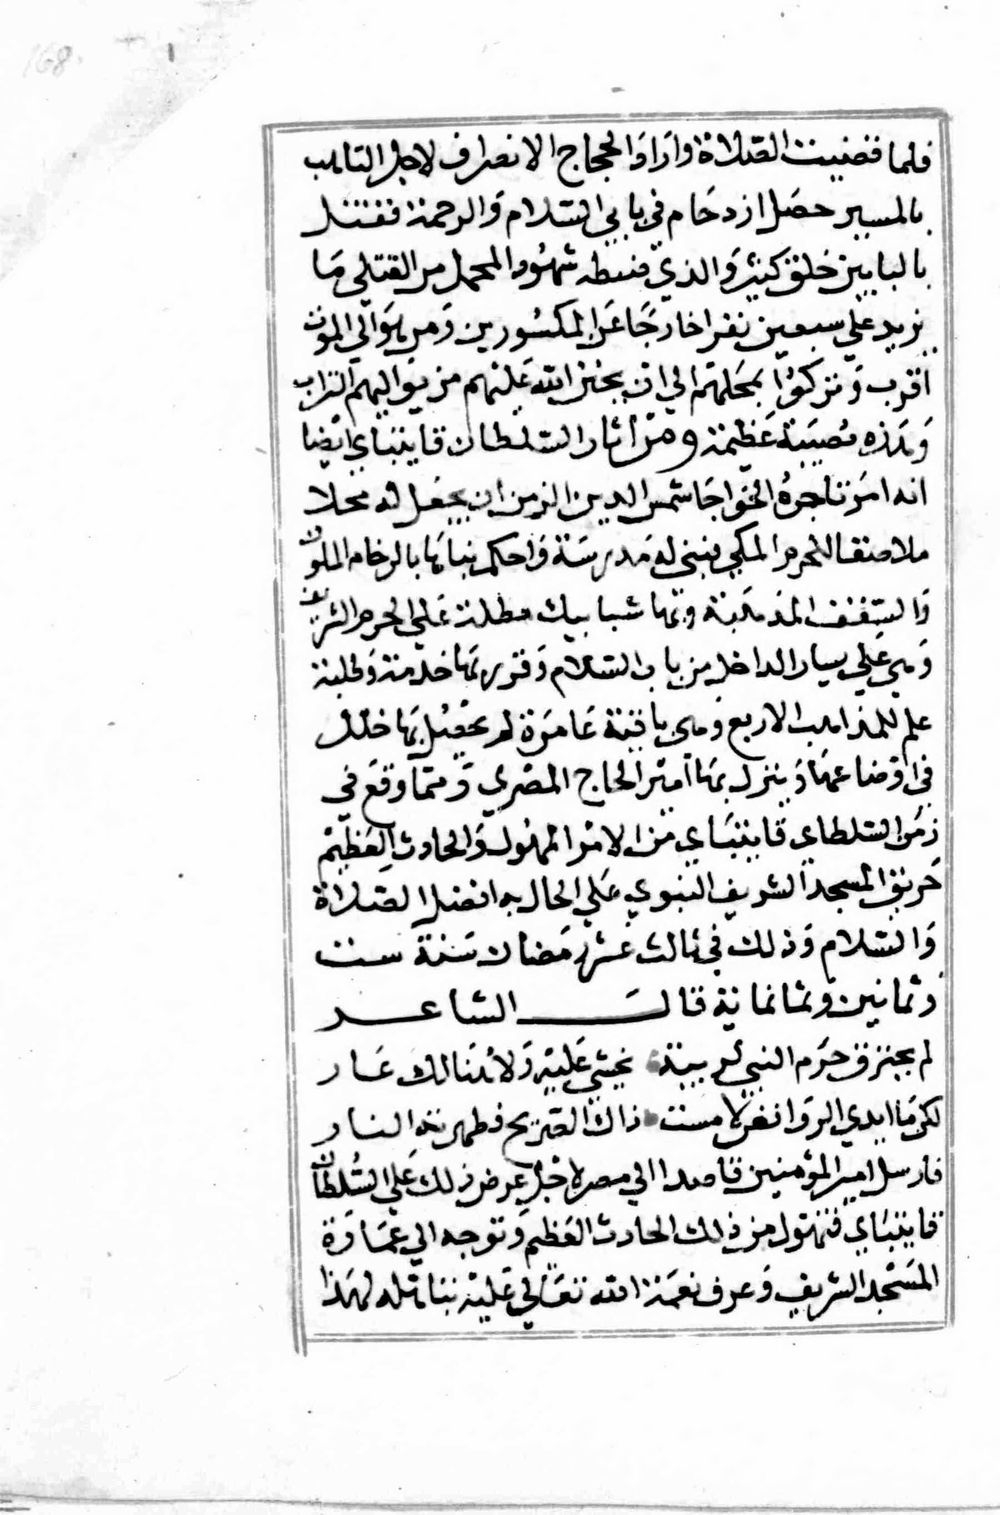 168
فلما قضيت الصلاة واراد الحجاج الانصراف لاجل التاهب
بالمسير حصل ازدحام في بابي السلام والرحمة فقتل
بالبابين خلق كثير والذي ضبطه شهود المحمل من القتلي ما
يزيد علي سبعين نفرا خارجا عن المكسورين ومن هو الي الموت
اقرب وتركوا بمحلهم الي ان يحنن الله عليهم من يواليهم التراب
وهذه مصيبة عظيمة ومن اثار السلطان قايتباي ايضا
انه امر تاجره الخواجا شمس الدين الزمن ان يجعل له محلا
ملاصقا للحرم المكي فبني له مدرسة واحكم بناها بالرخام الملون
والسقف المذهبة وبها شبابيك مطلة علي الحرم الشريف
وهي علي يسار الداخل من باب السلام وقرر بها خدمة وطلبة
علم للمذاهب الاربع وهي باقية عامرة لم يحصل بها خلل
في اوضاعها وينزل بها امير الحاج المصري ومما وقع في
زمن السلطان قايتباي من الامر المهول والحادث العظيم
حريق المسجد الشريف النبوي علي الحال به افضل الصلاة
والسلام وذلك في ثالث عشر رمضان سنة ست
وثمانين وثمانماية قال الشاعر
لم يحترق حرم النبي لريبة يخشي عليه ولا هنالك عار
لكن ما ايدي الروافض لامست ذاك الضريح فطهرته النار
فارسل امير المؤمنين قاصدا الي مصر لاجل عرض ذلك علي السلطان
قايتباي فتهول من ذلك الحادث العظيم وتوجه الي عمارة
المسجد الشريف وعرف نعمة الله تعالي عليه بتاهله لهذا